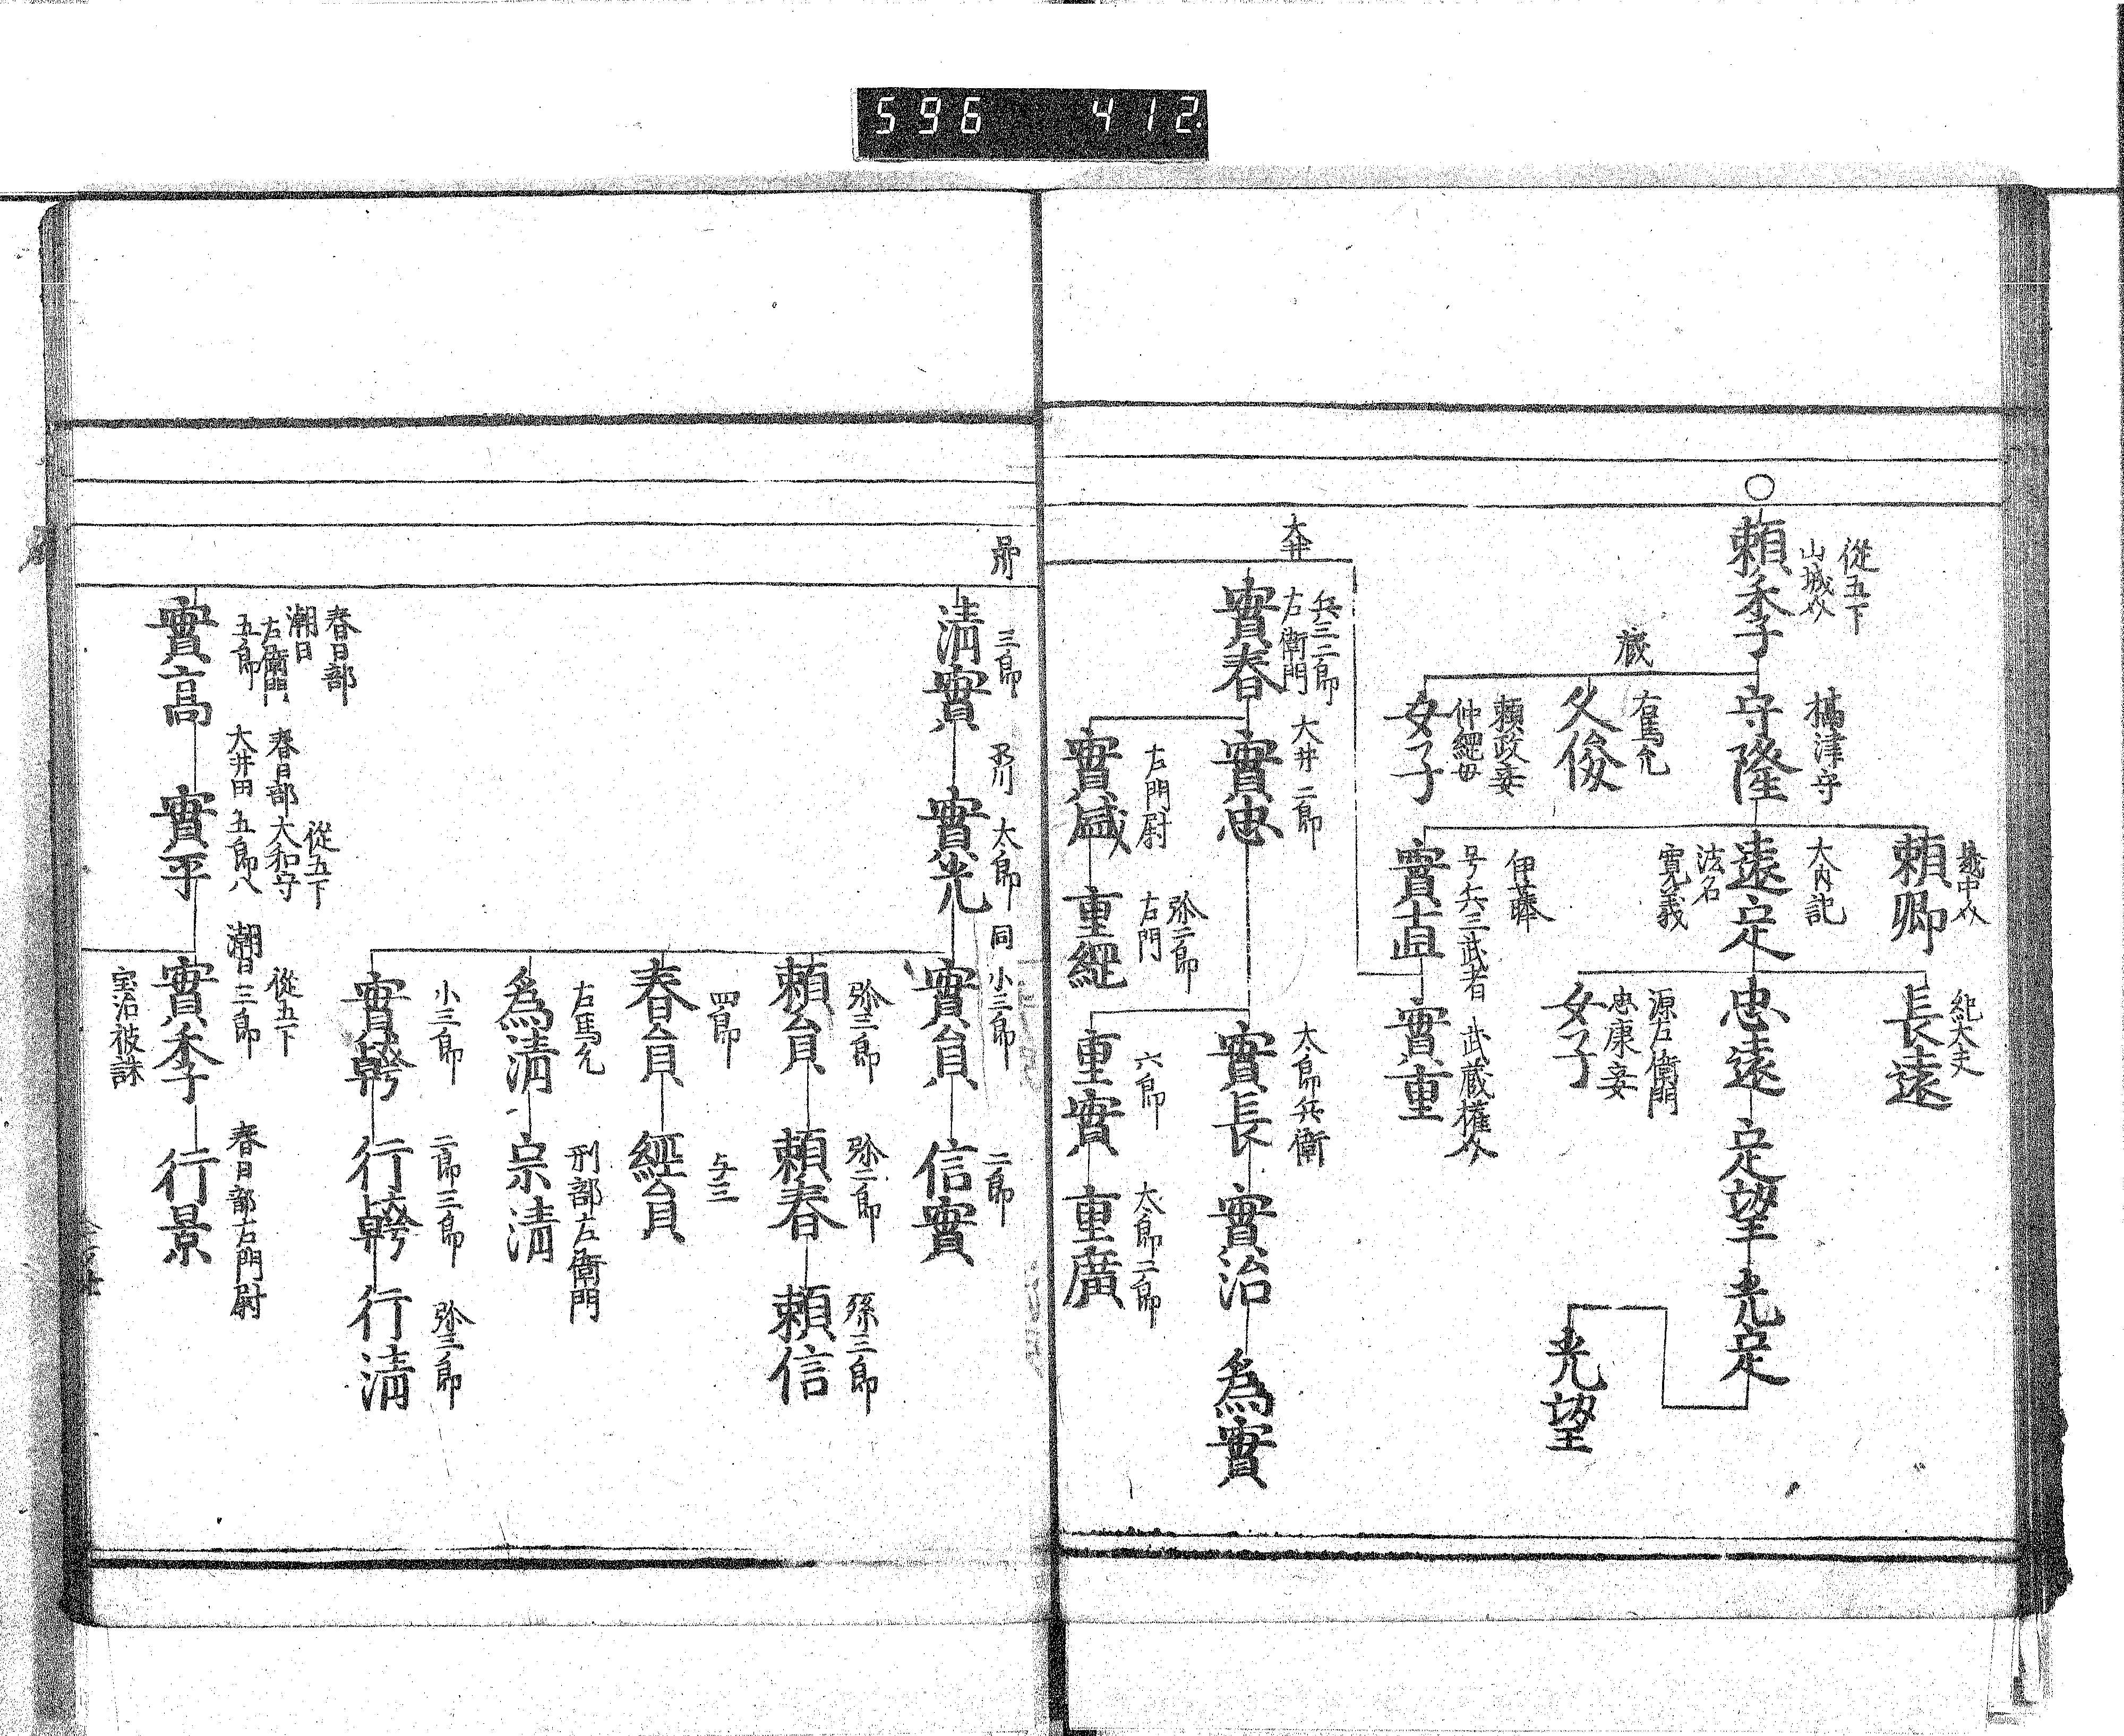 596 412
従五下
山城介
頼季
攝津守
守隆
蔵
右馬允
久俊
頼政妾
仲經母
女子
越中介
頼卿
大内記
遠定
法名
寛義
伊華
号兵三武者
實直
紀大夫
長遠
忠遠
源左衛門
忠康妾
女子
武蔵權介
實重
定望
光定
光望
大井
兵三二郎
右衛門
實春
大井二郎
實忠
左門尉
實盛
弥二郎
右門
重經
太郎兵衛
實長
六郎
重實
實治
太郎二郎
重廣
為實
三郎
清實
太郎
實光
同小三郎
實員
弥三郎
頼員
四郎
春員
右馬允
為清
小三郎
實幹
二郎
信實
弥二郎
頼春
与三
經員
刑部左衛門
宗清
二郎三郎
行幹
孫三郎
頼信
弥二郎
行清
春日部
潮日
右衛門
五郎
實高
従五下
春日部大和守
大井田五郎八
實平
従五下
潮日三郎
實季
宝治被誅
春日部左門尉
行景